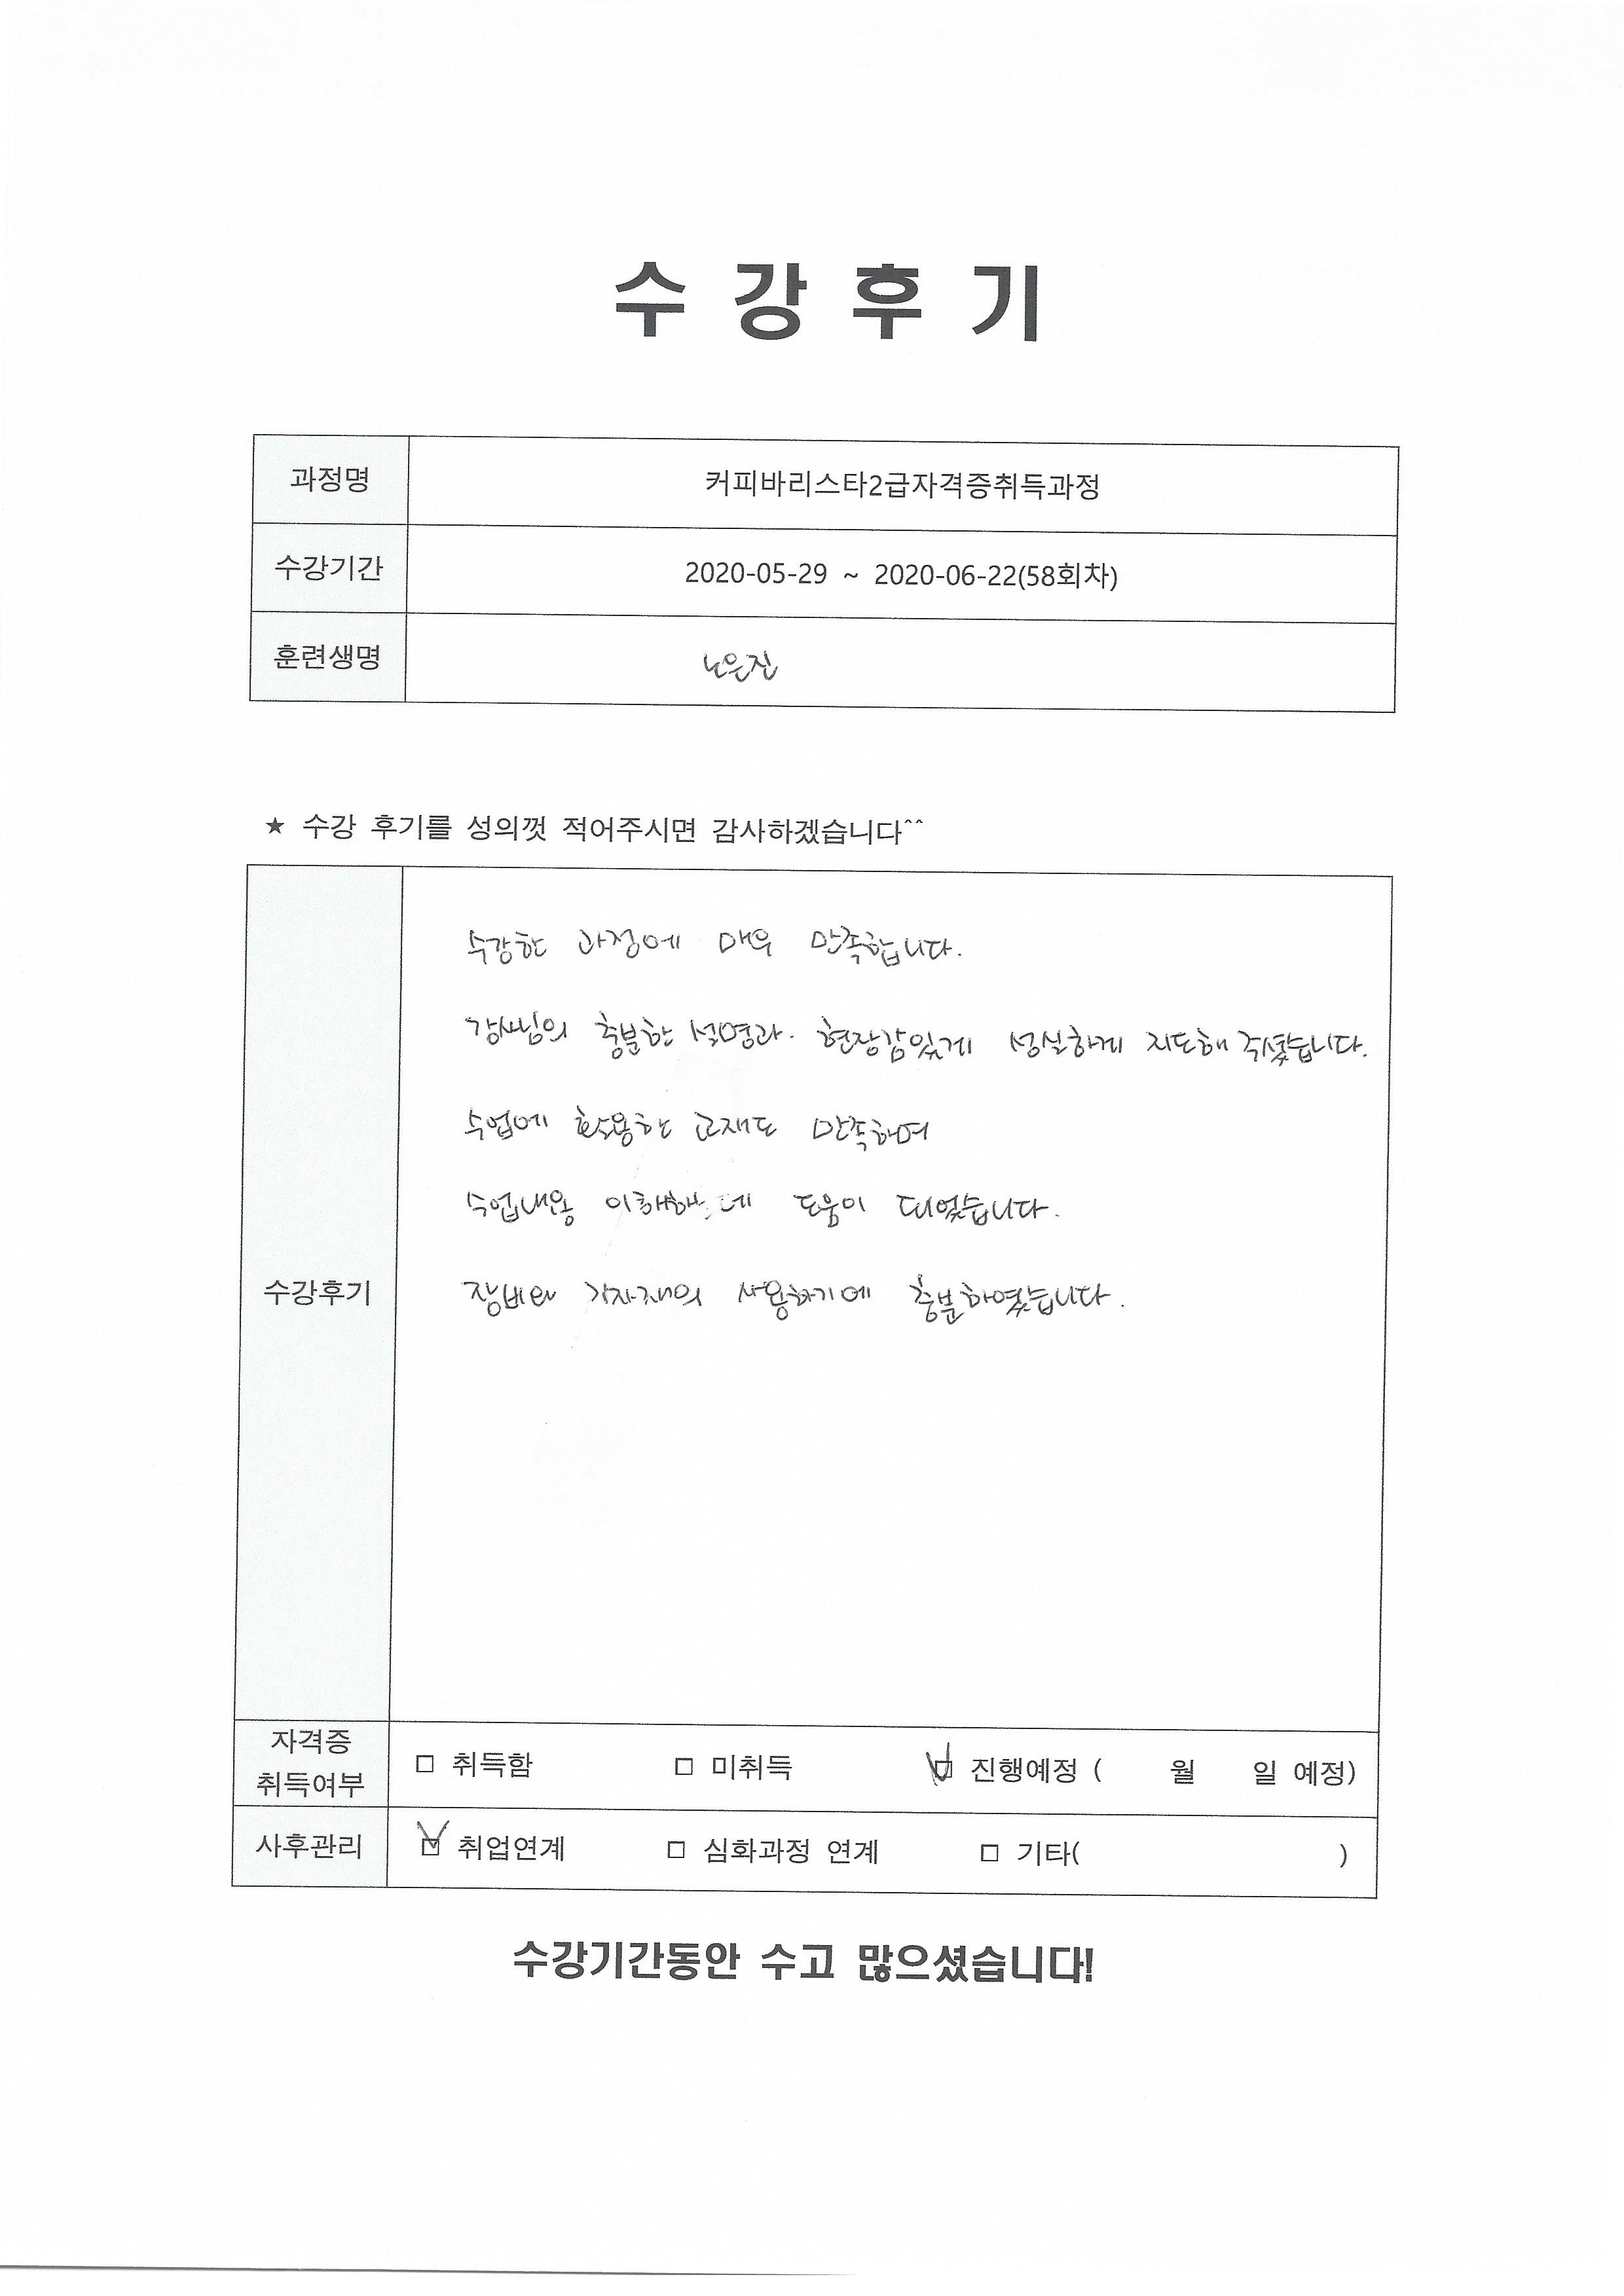 수 강 후 기
과정명 커피바리스타2급자격증취득과정
수강기간 2020-05-29 ~ 2020-06-22(58회차)
훈련생명 노은진
★ 수강 후기를 성의껏 적어주시면 감사하겠습니다^^
수강한 과정에 매우 만족합니다.
강사님의 충분한 설명과. 현장감있게 성실하게 지도해 주셨습니다.
수업에 활용한 교재도 만족하며
수업내용 이해하는데 도움이 되었습니다.
수강후기
장비와 기자재의 사용하기에 충분하였습니다.
자격증
취득여부
□ 취득함 □ 미취득 ☑ 진행예정 ( 월 일 예정)
사후관리 ☑ 취업연계 □ 심화과정 연계 □ 기타( )
수강기간동안 수고 많으셨습니다!